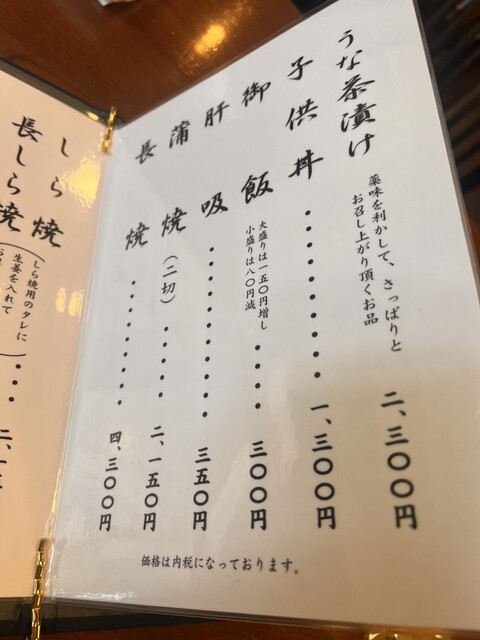 うな茶漬け
薬味を利かして、さっぱりと
お召し上がり頂くお品
二、三〇〇円
子供丼・・・・・・・・・・・一、三〇〇円
御飯
大盛りは一五〇円増し
小盛りは八〇円減
・・・・三〇〇円
肝吸・・・・・・・・・・三五〇円
蒲焼（二切）・・・・・・二、一五〇円
長焼・・・・・・・・・・四、三〇〇円
価格は内税になっております。
しら焼
長しら焼
（しら焼用のタレに
生姜を入れて
・・・